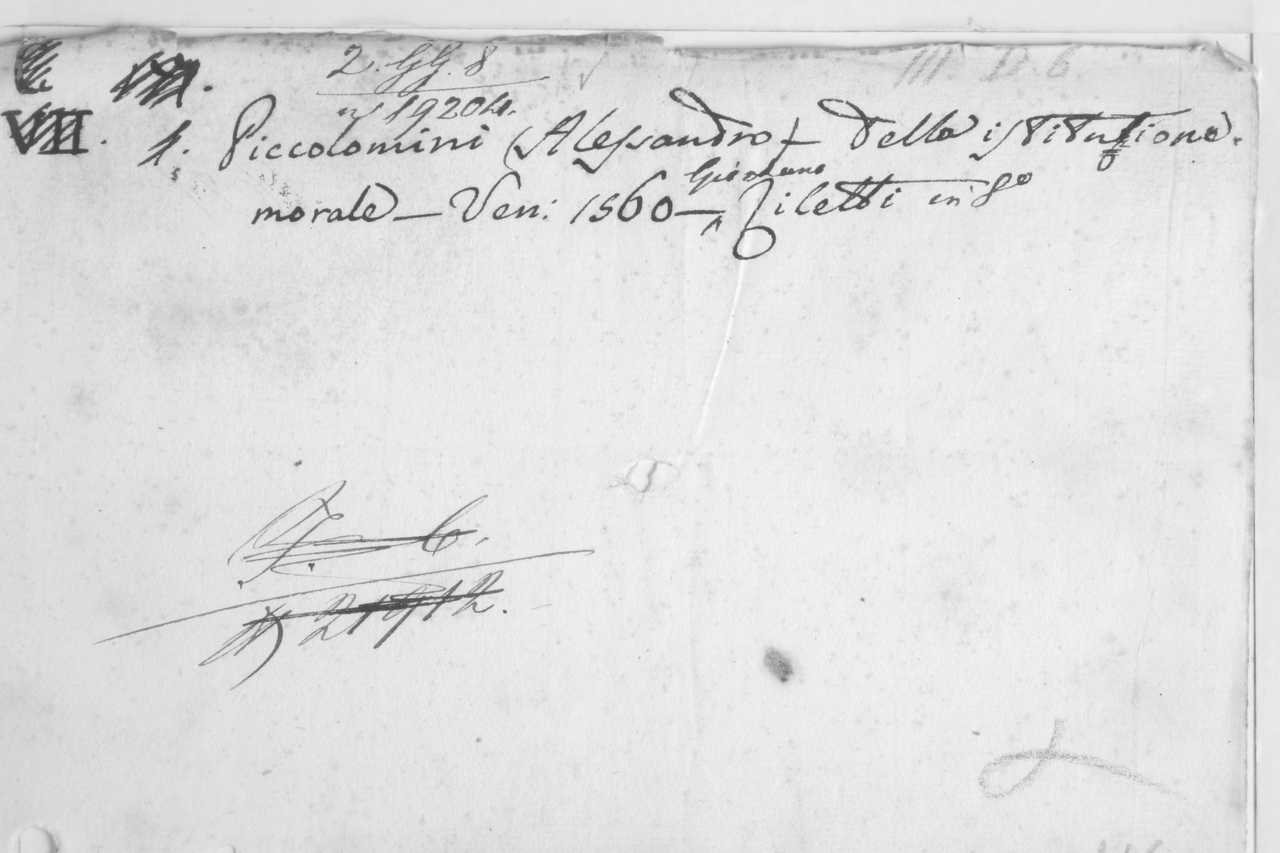 2. GG. 8
III. D. 6.
n° 19204.
VIII. 1. Piccolomini (Alessandro) — Della istituzione
morale — Ven: 1560 — Giordano Ziletti in 8°
21912.